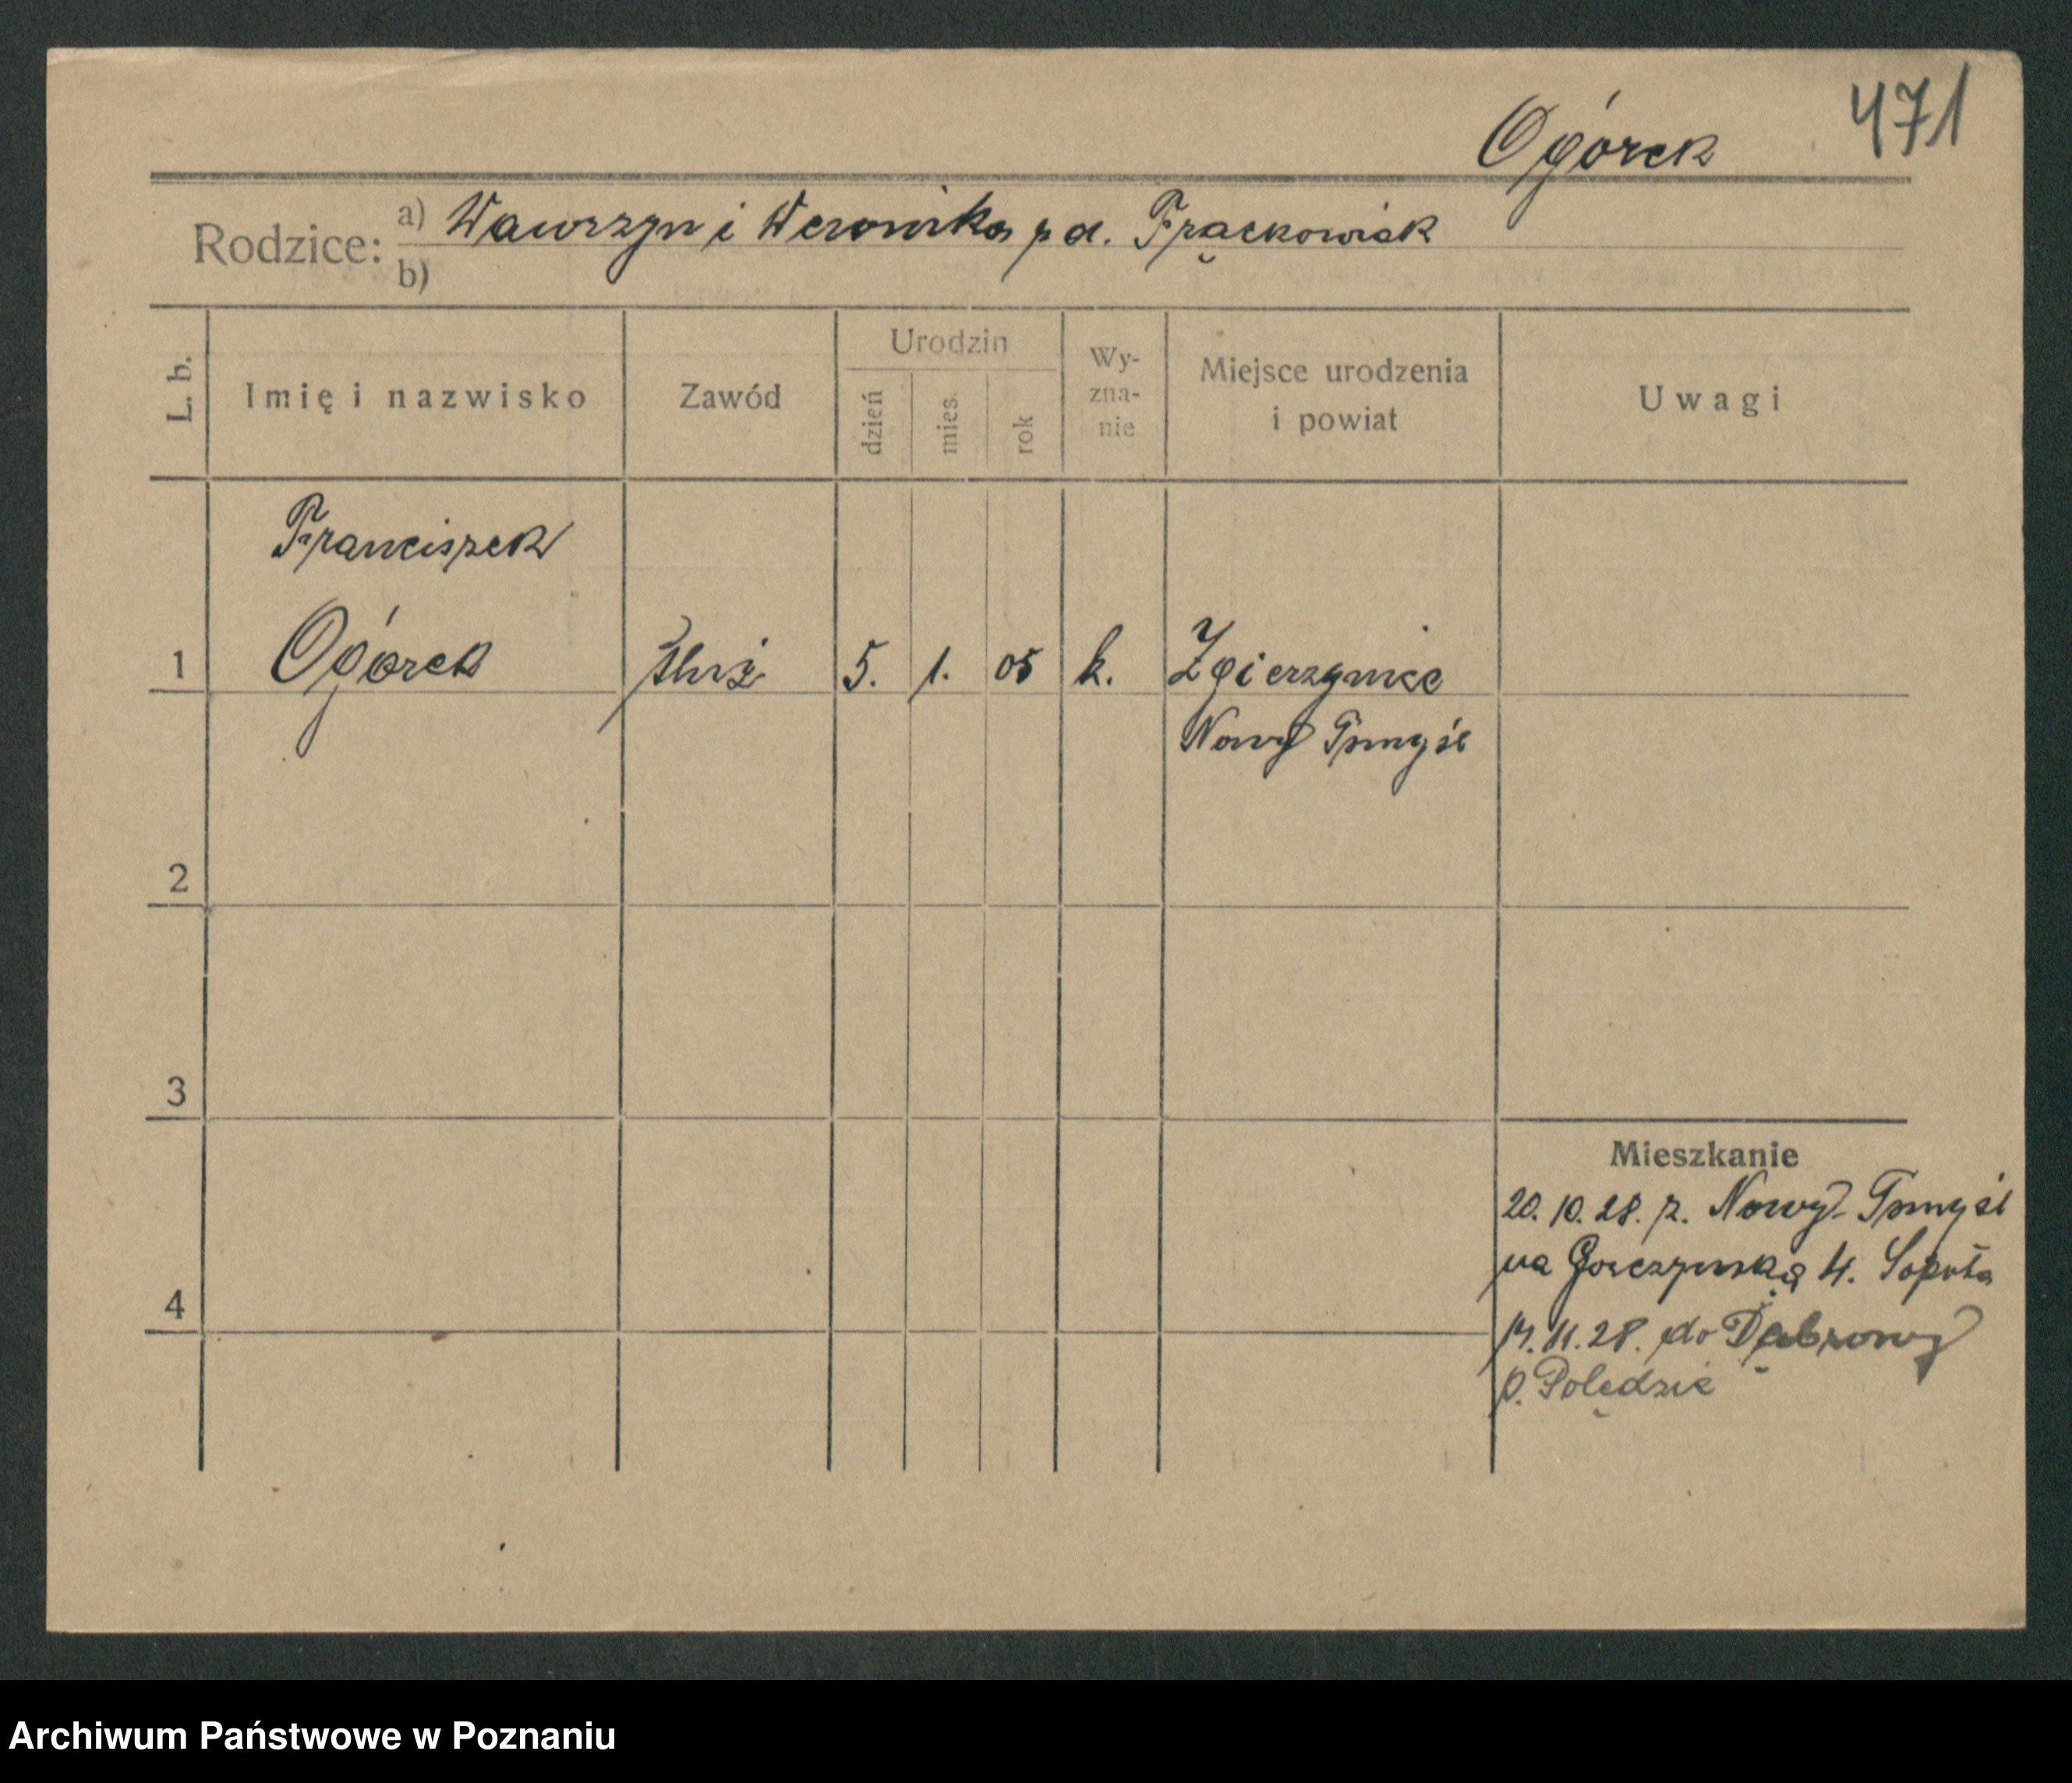 471
Ogórek
Rodzice: a) Wawrzyn i Weronika z d. Frąckowiak
b)
L. b.
Imię i nazwisko
Zawód
Urodzin
dzień
mies.
rok
Wy-
zna-
nie
Miejsce urodzenia
i powiat
Uwagi
Franciszek
1 Ogórek służ 5. 1. 05 k. Zgierzynice
Nowy Tomyśl
2
3
4
Mieszkanie
20. 10. 28. z. Nowy-Tomyśl
na Gorczyńską 4.
14. 11. 28. do Dąbrowy
p. Palędzie
Archiwum Państwowe w Poznaniu